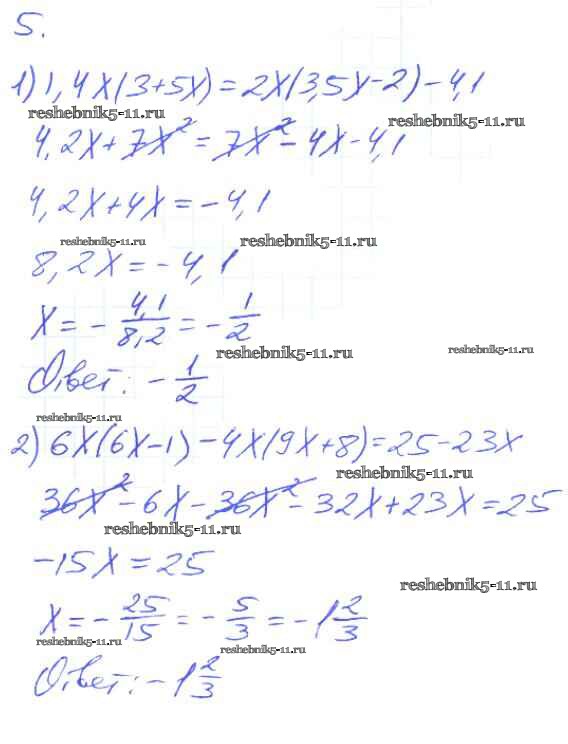 5.
1) 1,4x(3+5x)=2x(3,5x-2)-4,1
reshebnik5-11.ru reshebnik5-11.ru
4,2x+7x²=7x²-4x-4,1
4,2x+4x=-4,1
reshebnik5-11.ru reshebnik5-11.ru
8,2x=-4,1
x=-4,1/8,2=-1/2
reshebnik5-11.ru reshebnik5-11.ru
Ответ: -1/2
reshebnik5-11.ru
2) 6x(6x-1)-4x(9x+8)=25-23x
reshebnik5-11.ru
36x²-6x-36x²-32x+23x=25
reshebnik5-11.ru
-15x=25
reshebnik5-11.ru
x=-25/15=-5/3=-1 2/3
reshebnik5-11.ru reshebnik5-11.ru
Ответ: -1 2/3